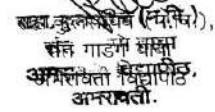 सहा. कुलसचिव (न्या.वि.),
संत गाडगे बाबा
अमरावती विद्यापीठ,
अमरावती.